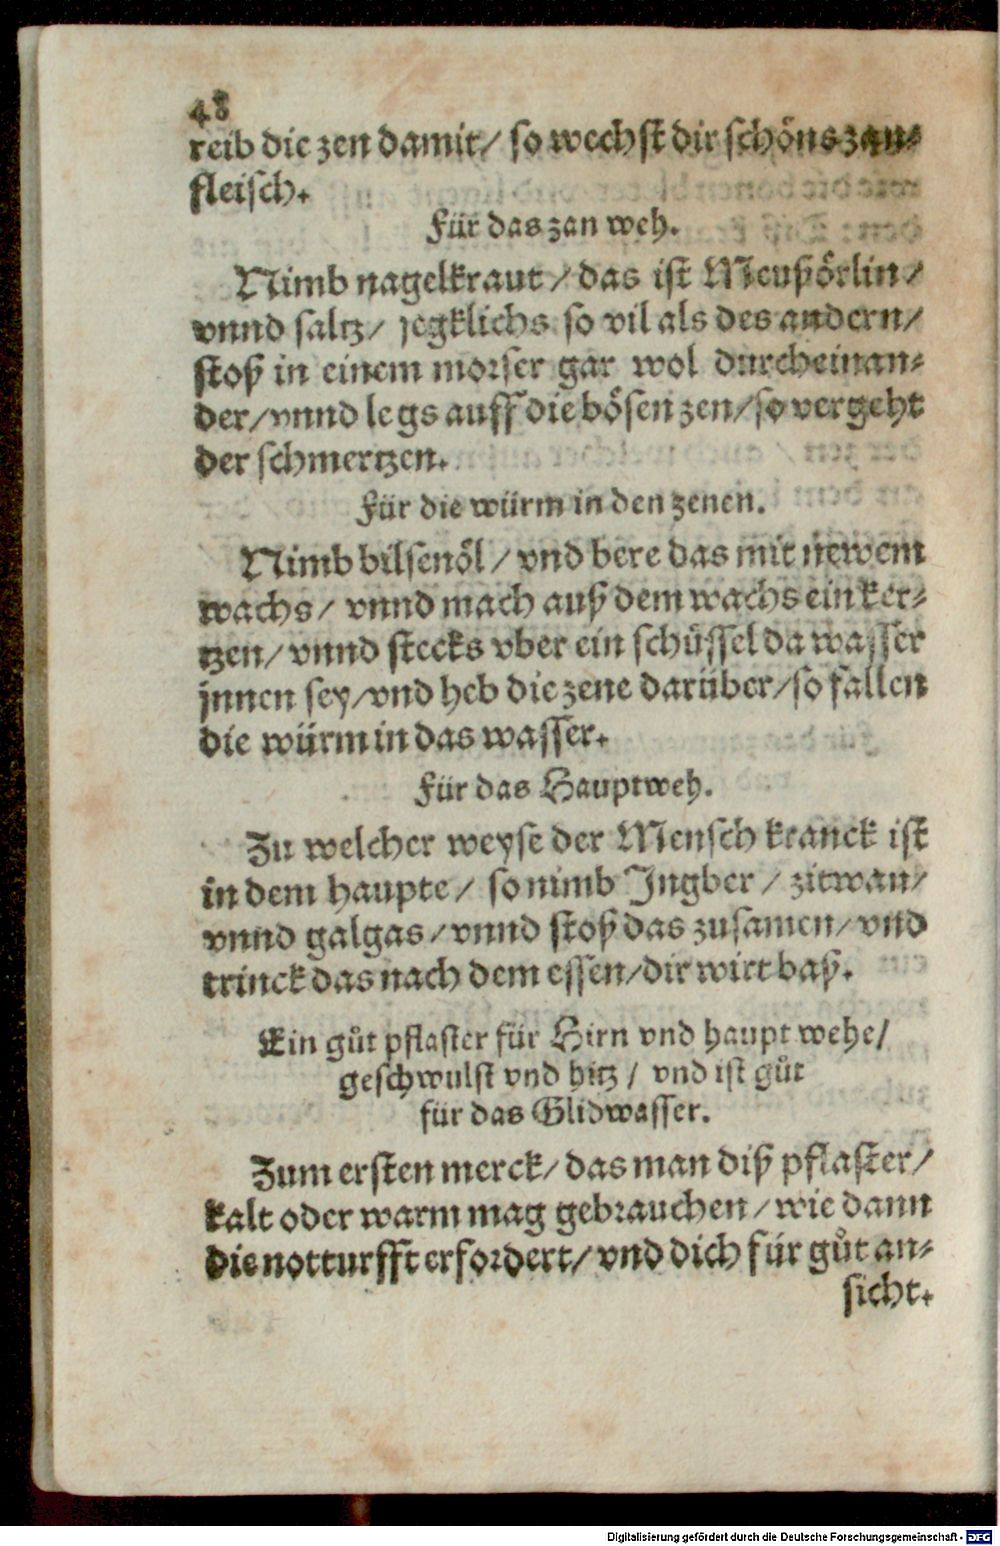 48
reib die zen damit/ so wechst dir schöns zan⸗
fleisch.
Für das zan weh.
Nimb nagelkraut/ das ist Meußörlin/
vnnd saltz/ jegklichs so vil als des andern/
stoß in einem morser gar wol durcheinan⸗
der/ vnnd legs auff die bösen zen/ so vergeht
der schmertzen.
Für die würm in den zenen.
Nimb bilsenöl/ vnd bere das mit newem
wachs/ vnnd mach auß dem wachs ein ker⸗
tzen/ vnnd stecks vber ein schüssel da wasser
jnnen sey/ vnd heb die zene darüber/ so fallen
die würm in das wasser.
Für das Hauptweh.
Zu welcher weyse der Mensch kranck ist
in dem haupte/ so nimb Ingber/ zitwan/
vnnd galgas/ vnnd stoß das zusamen/ vnd
trinck das nach dem essen/ dir wirt baß.
Ein gůt pflaster für Hirn vnd haupt wehe/
geschwulst vnd hitz/ vnd ist gůt
für das Glidwasser.
Zum ersten merck/ das man diß pflaster/
kalt oder warm mag gebrauchen/ wie dann
die notturfft erfordert/ vnd dich für gůt an⸗
sicht.
Digitalisierung gefördert durch die Deutsche Forschungsgemeinschaft - DFG